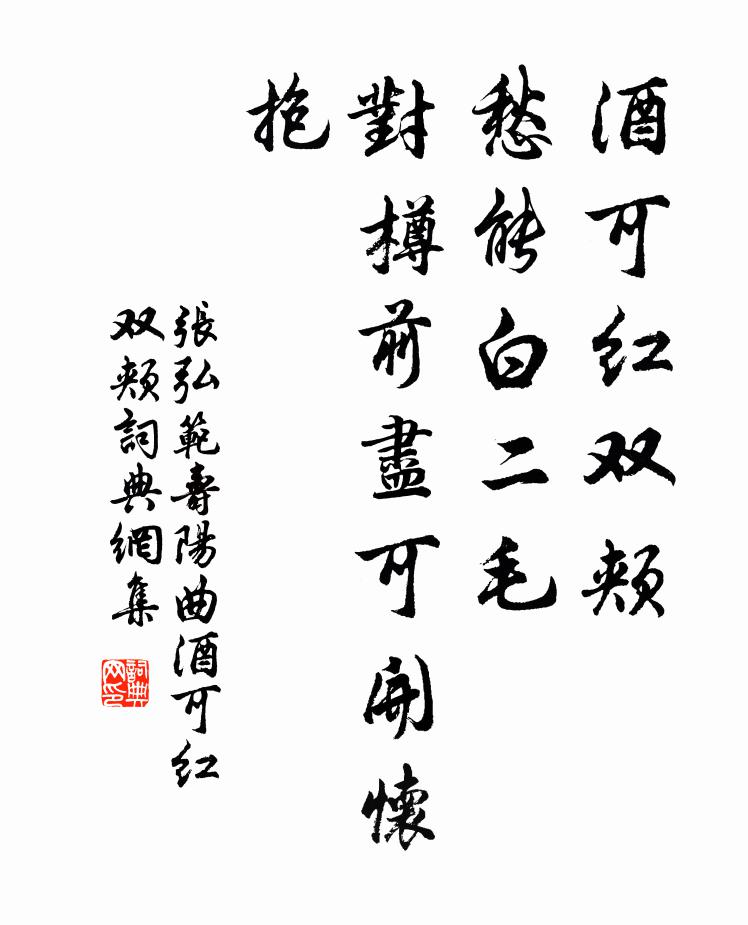 酒可红双颊
愁能白二毛
對樽前盡可開懷
抱
張弘範壽陽曲酒可红
双頰詞典網集
詞典网印